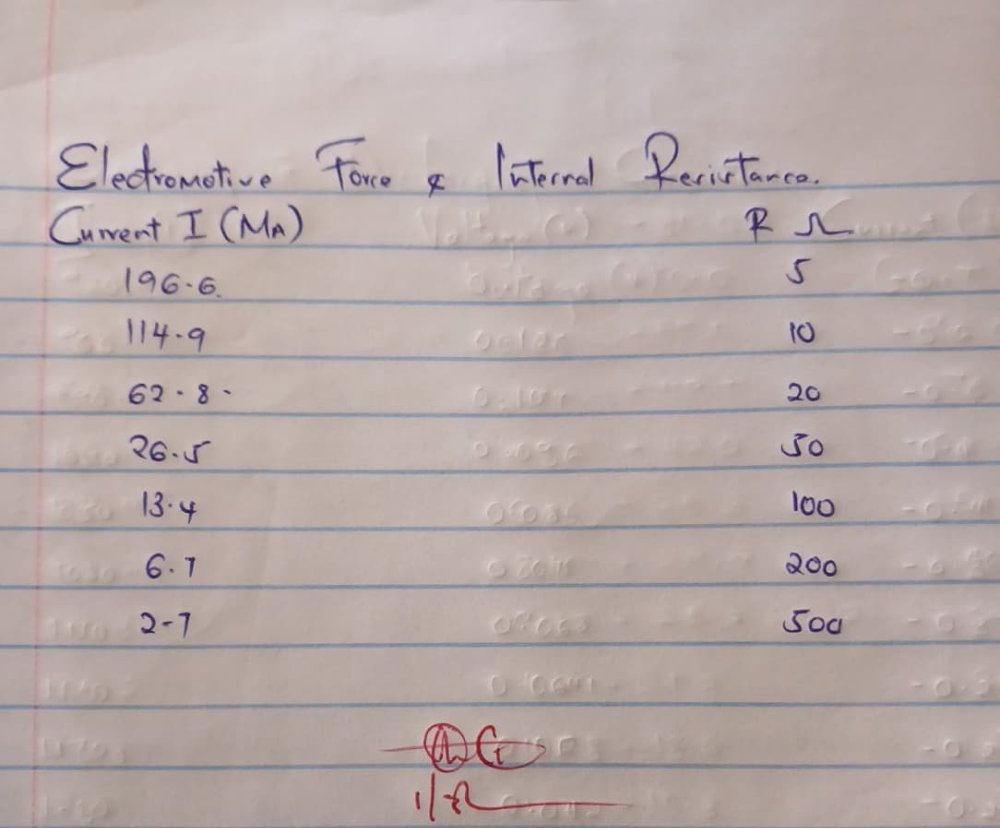 Electromotive Force & Internal Resistance.
Current I (MA) R Ω
196.6 5
114.9 10
62.8 20
26.5 50
13.4 100
6.7 200
2.7 500